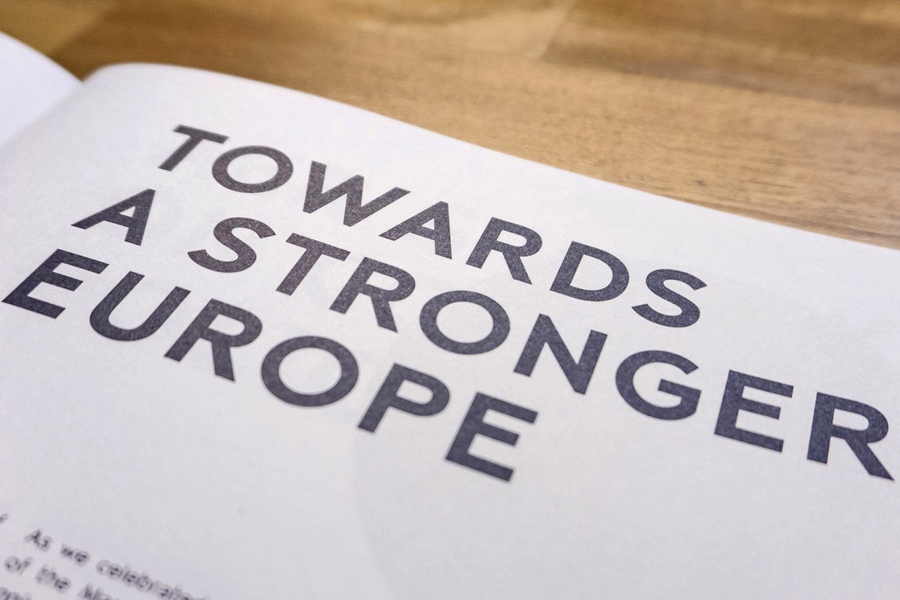 TOWARDS
A STRONGER
EUROPE
As we celebrated
of the